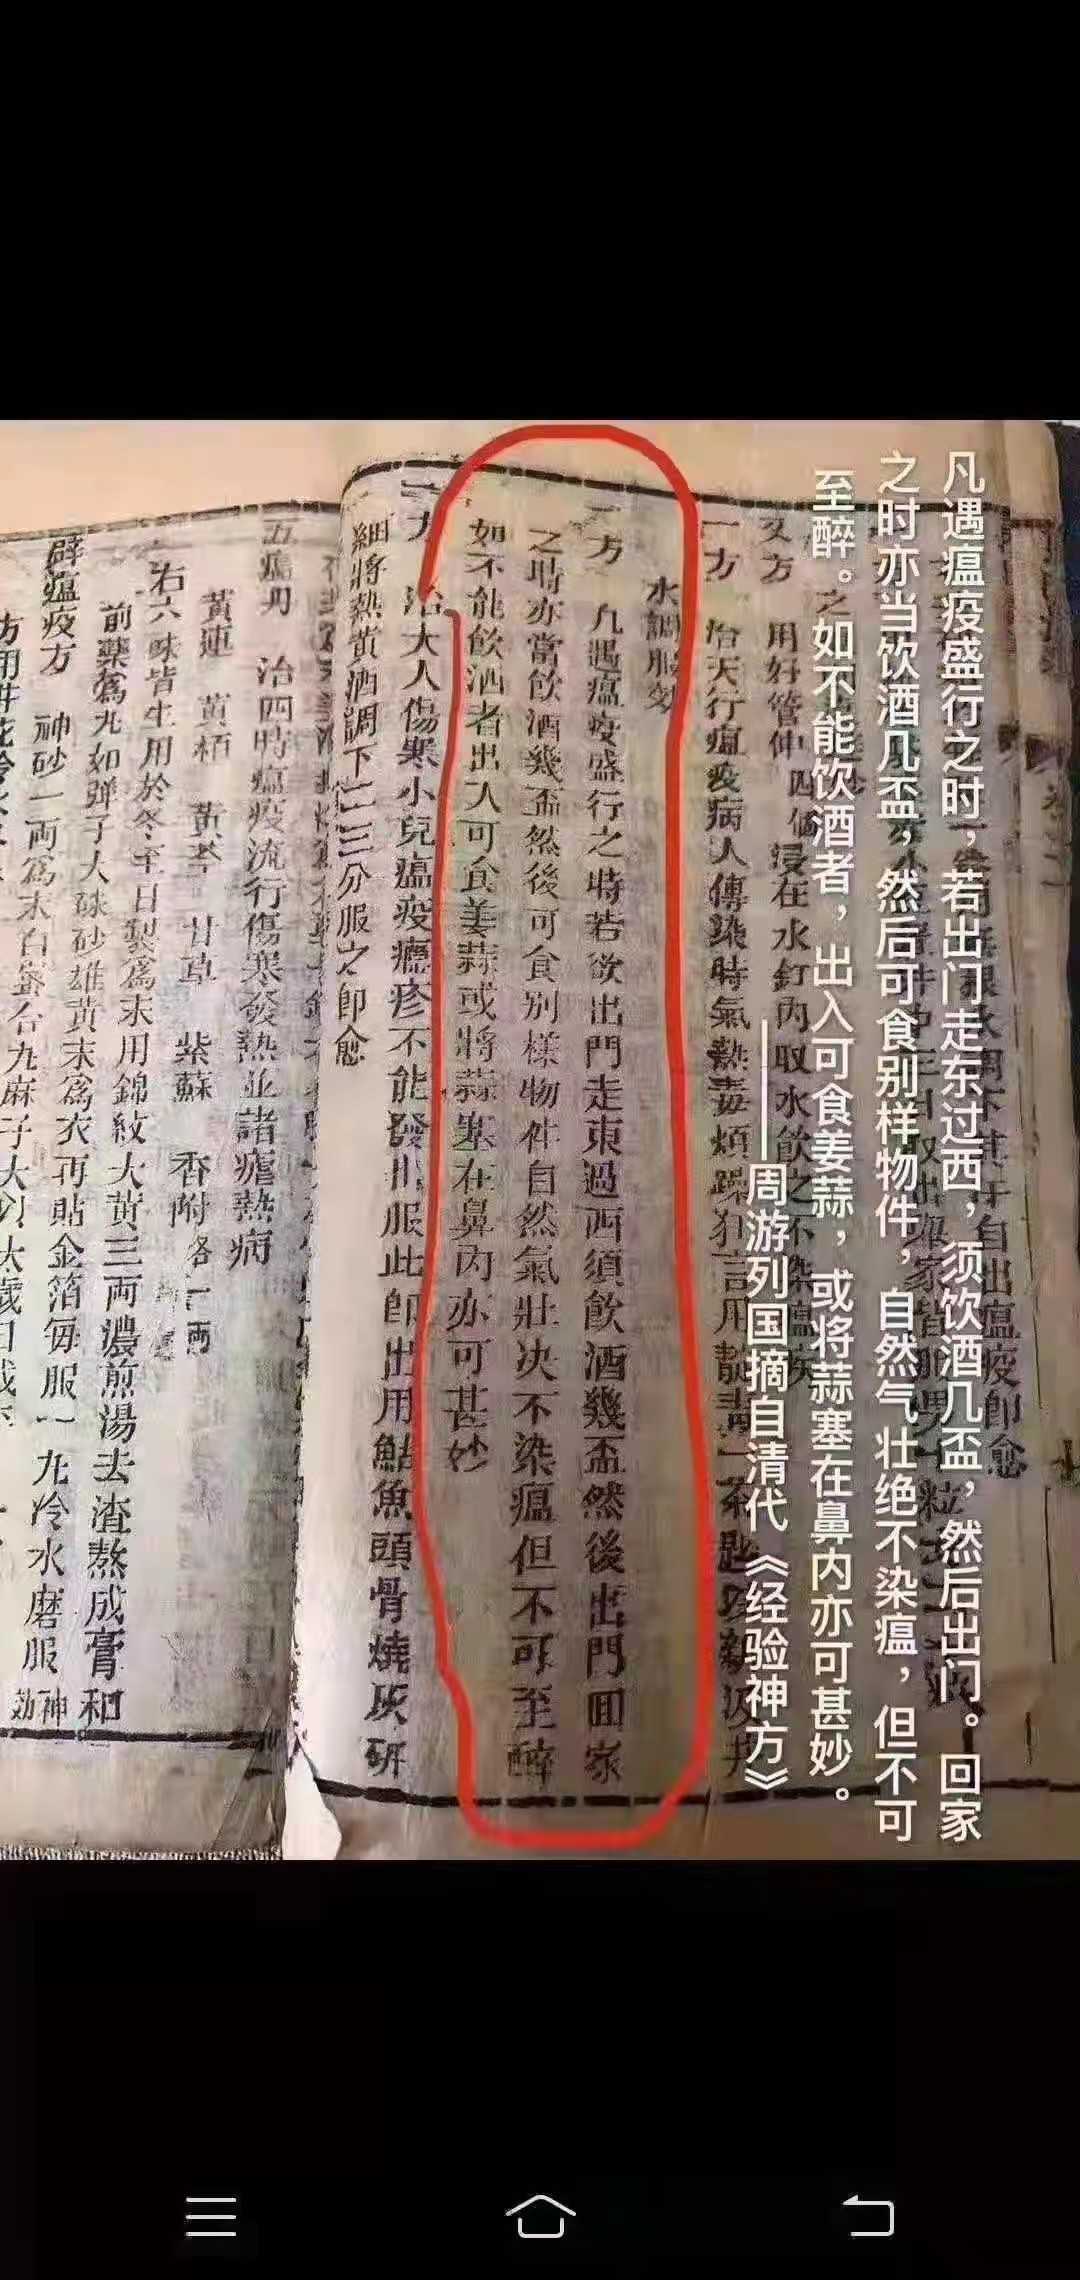 凡遇瘟疫盛行之时，若出门走东过西，须饮酒几盃，然后出门。回家
之时亦当饮酒几盃，然后可食别样物件，自然气壮绝不染瘟，但不可
至醉。之如不能饮酒者，出入可食姜蒜，或将蒜塞在鼻内亦可甚妙。
———周游列国摘自清代《经验神方》
又方 用好管仲四個浸在水缸內取水飲之不染瘟疾
一方 治天行瘟疫病人傳染時氣熱毒煩躁狂言用靛青一茶匙
水調服効
一方 凡遇瘟疫盛行之時若欲出門走東過西須飲酒幾盃然後出門囬家
之時亦當飲酒幾盃然後可食別樣物件自然氣壯决不染瘟但不可至醉
如不能飲酒者出入可食姜蒜或將蒜塞在鼻內亦可甚妙
一方 治大人傷寒小兒瘟疫癮疹不能發出服此即出用鮎魚頭骨燒灰研
細將熱黃酒調下二三分服之即愈
五瘟丹 治四時瘟疫流行傷寒發熱並諸瘧熱病
黃連 黃栢 黃芩 甘草 紫蘇 香附 各一両
右六味皆生用於冬至日製為末用錦紋大黃三両濃煎湯去渣熬成膏和
前藥為九如弾子大硃砂雄黃末為衣再貼金箔每服一九冷水磨服神効
辟瘟疫方 神砂一両為末白蜜合九麻子大以太歲日或